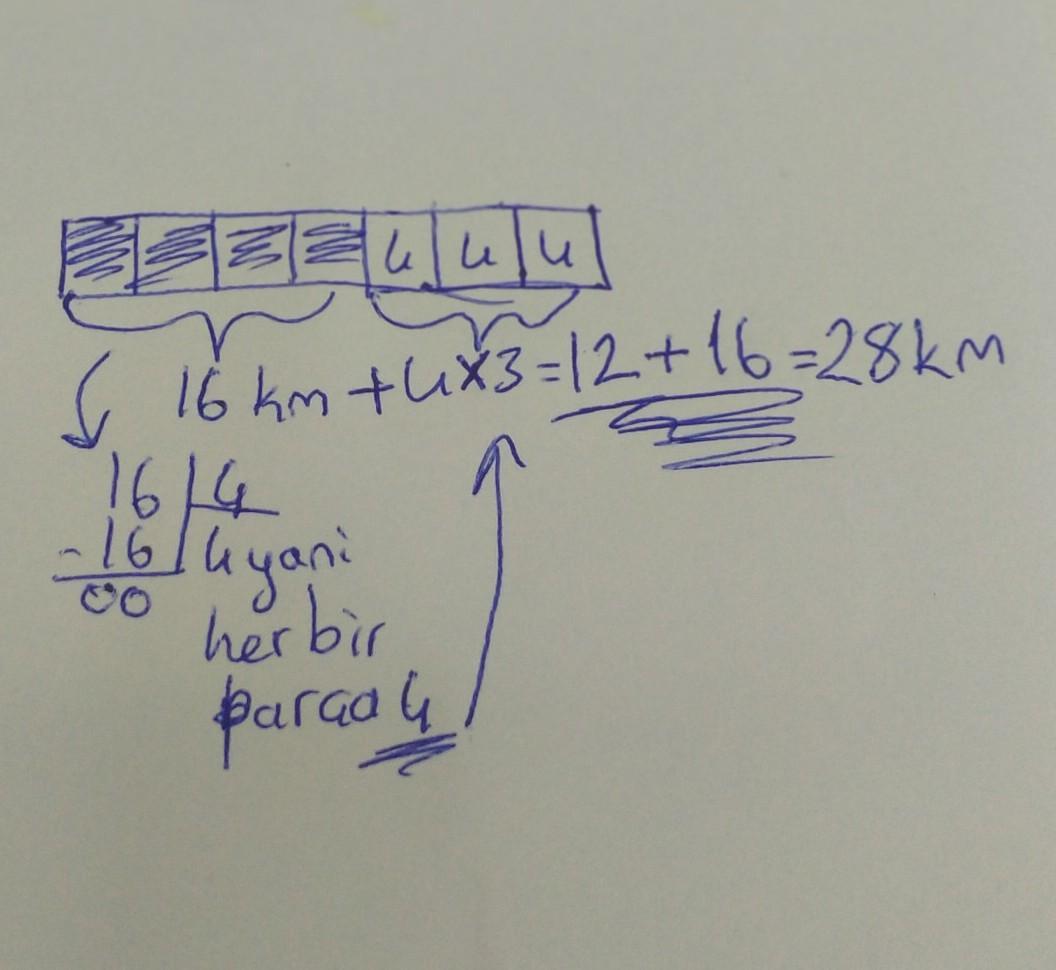 4 4 4
16 km + 4x3 = 12 + 16 = 28 km
16 4
- 16 4 yani
00
her bir
parça 4